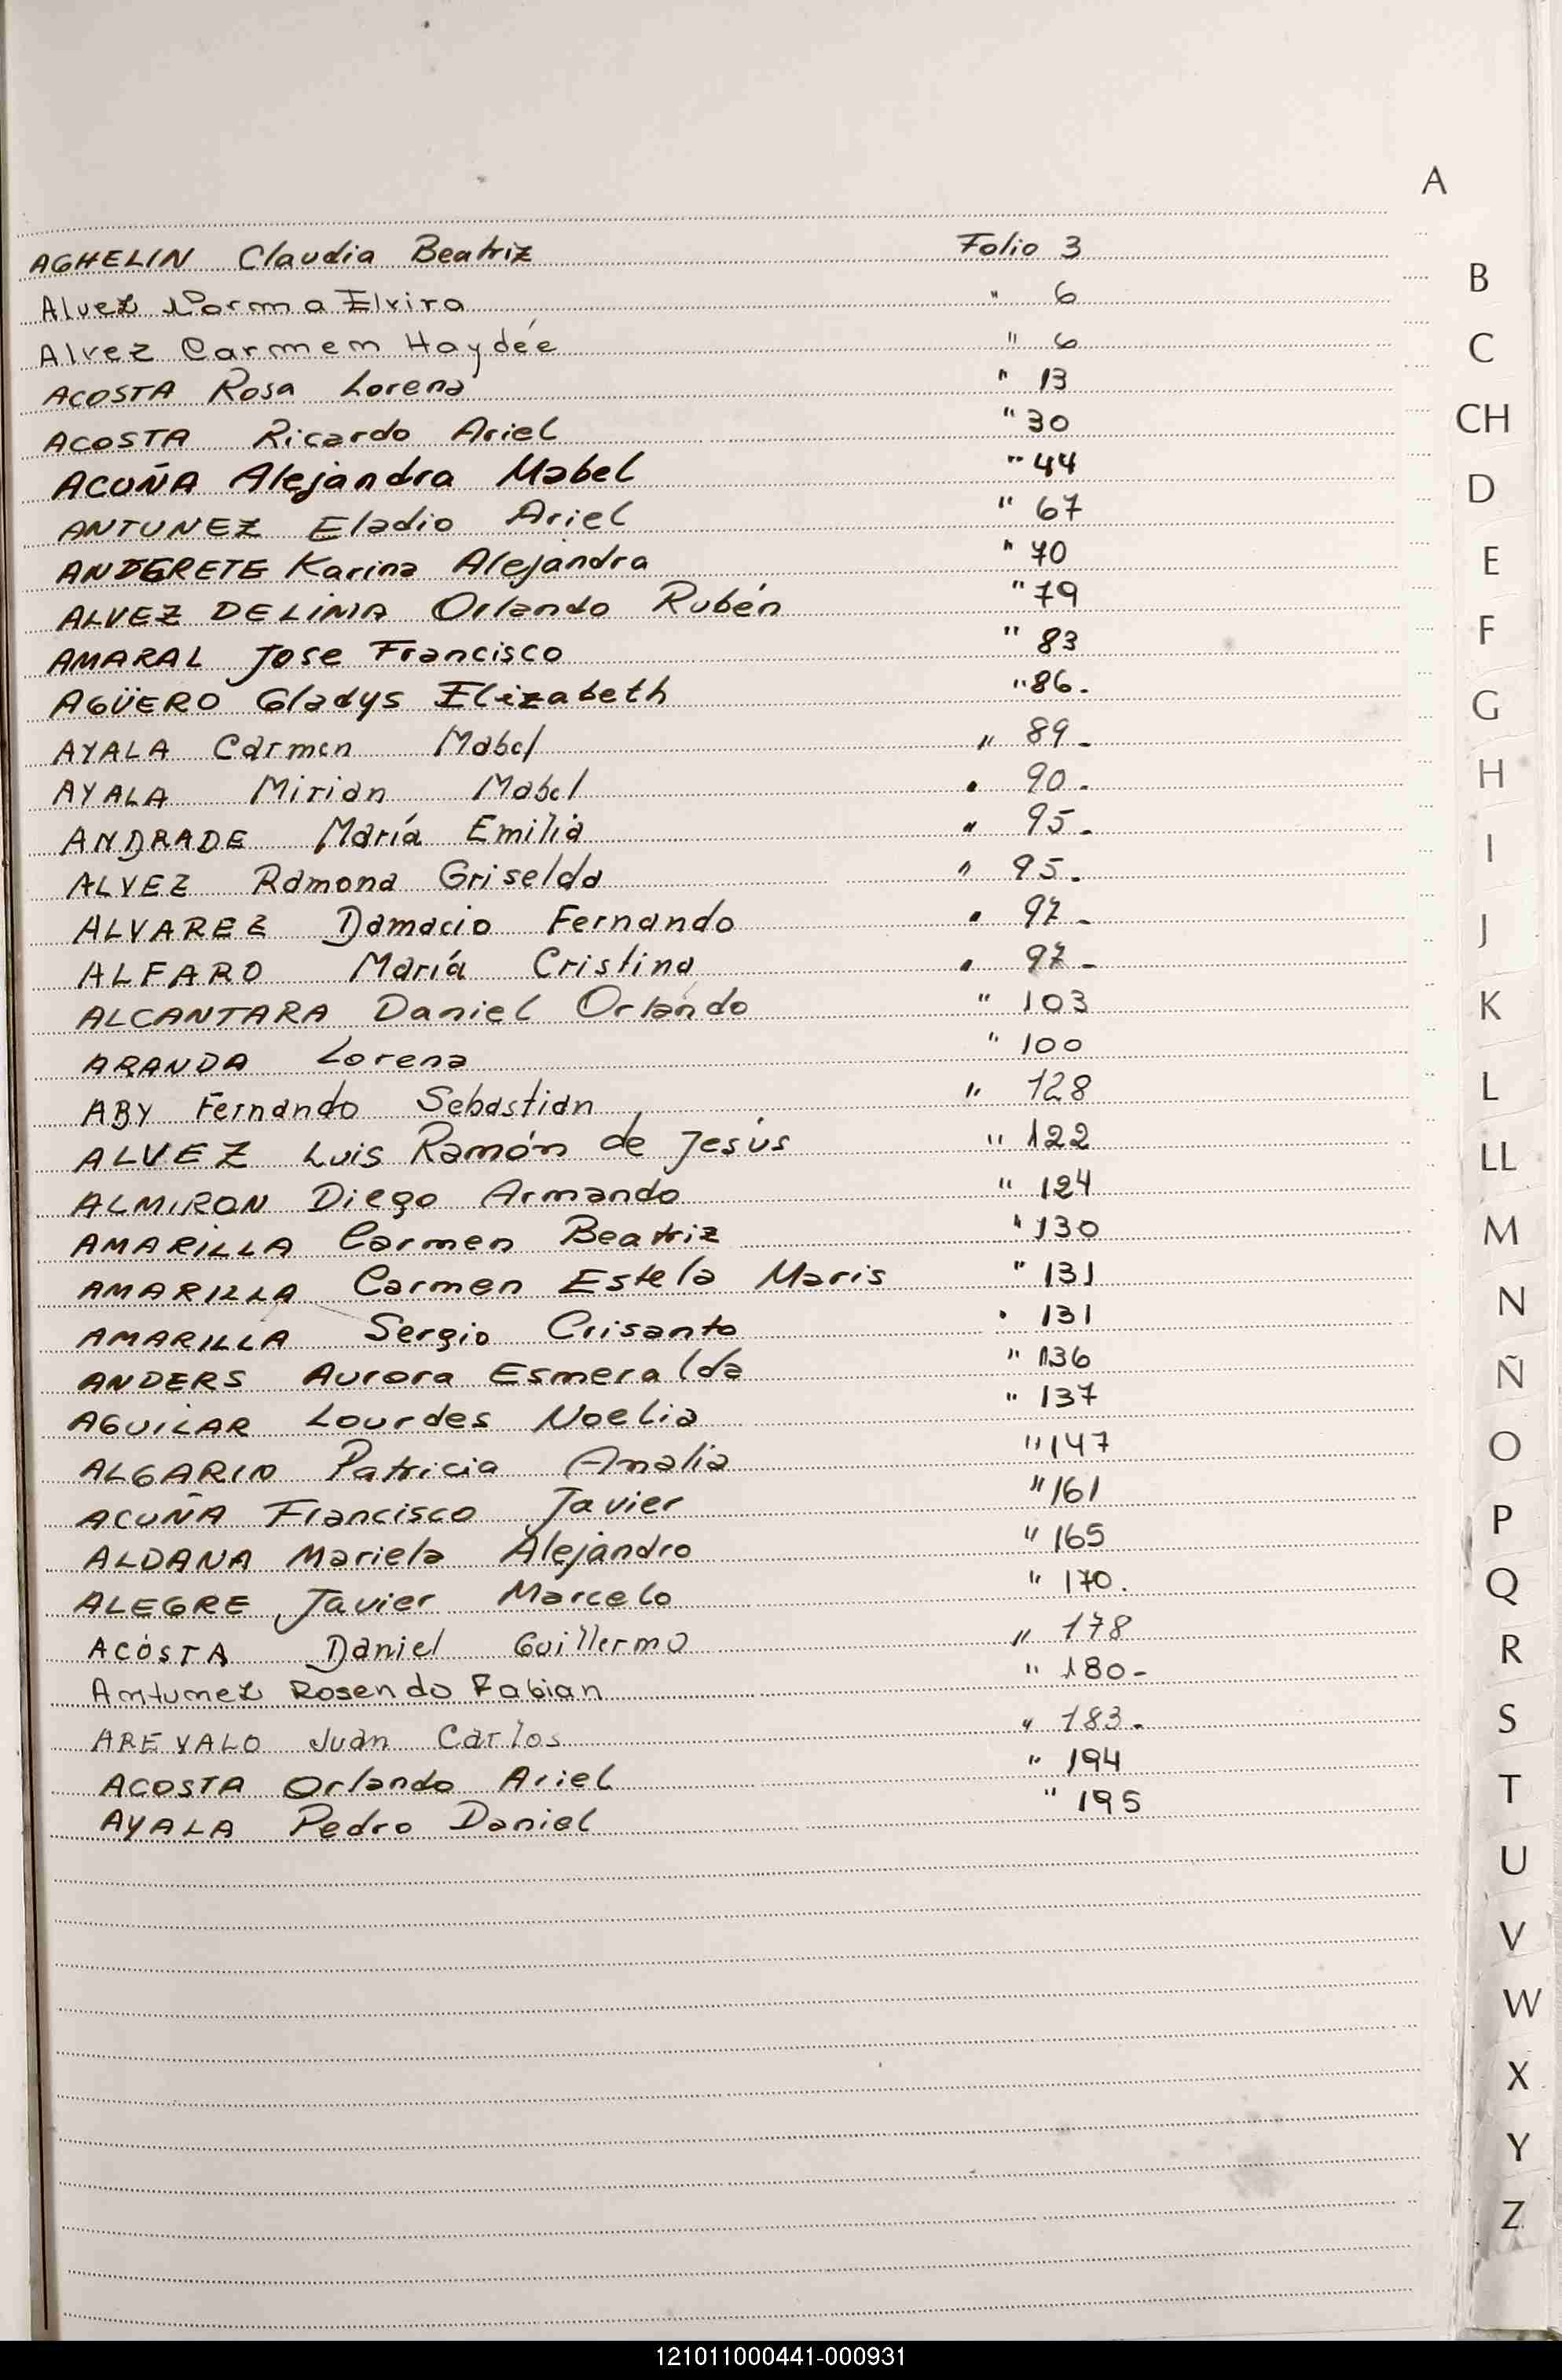 A
AGHELIN Claudia Beatriz Folio 3
Alvez Norma Elvira " 6
Alvez Carmem Haydée " 6
ACOSTA Rosa Lorena " 13
ACOSTA Ricardo Ariel " 30
ACUÑA Alejandra Mabel " 44
ANTUNEZ Eladio Ariel " 67
ANDERETE Karina Alejandra " 70
ALVEZ DE LIMA Orlando Rubén " 79
AMARAL Jose Francisco " 83
AGÜERO Gladys Elizabeth " 86.
AYALA Carmen Mabel " 89-
AYALA Mirian Mabel " 90-
ANDRADE María Emilia " 95-
ALVEZ Ramona Griselda " 95.
ALVAREZ Damacio Fernando " 97-
ALFARO María Cristina " 97-
ALCANTARA Daniel Orlando " 103
ARANDA Lorena " 100
ABY Fernando Sebastian " 128
ALVEZ Luis Ramón de Jesús " 122
ALMIRON Diego Armando " 124
AMARILLA Carmen Beatriz " 130
AMARILLA Carmen Estela Maris " 131
AMARILLA Sergio Crisanto " 131
ANDERS Aurora Esmeralda " 136
AGUILAR Lourdes Noelia " 137
ALGARIN Patricia Analia " 147
ACUÑA Francisco Javier " 161
ALDANA Mariela Alejandro " 165
ALEGRE Javier Marcelo " 170.
ACOSTA Daniel Guillermo " 178
Antunez Rosendo Fabian " 180-
AREVALO Juan Carlos " 183-
ACOSTA Orlando Ariel " 194
AYALA Pedro Daniel " 195
B
C
CH
D
E
F
G
H
I
J
K
L
LL
M
N
Ñ
O
P
Q
R
S
T
U
V
W
X
Y
Z
121011000441-000931